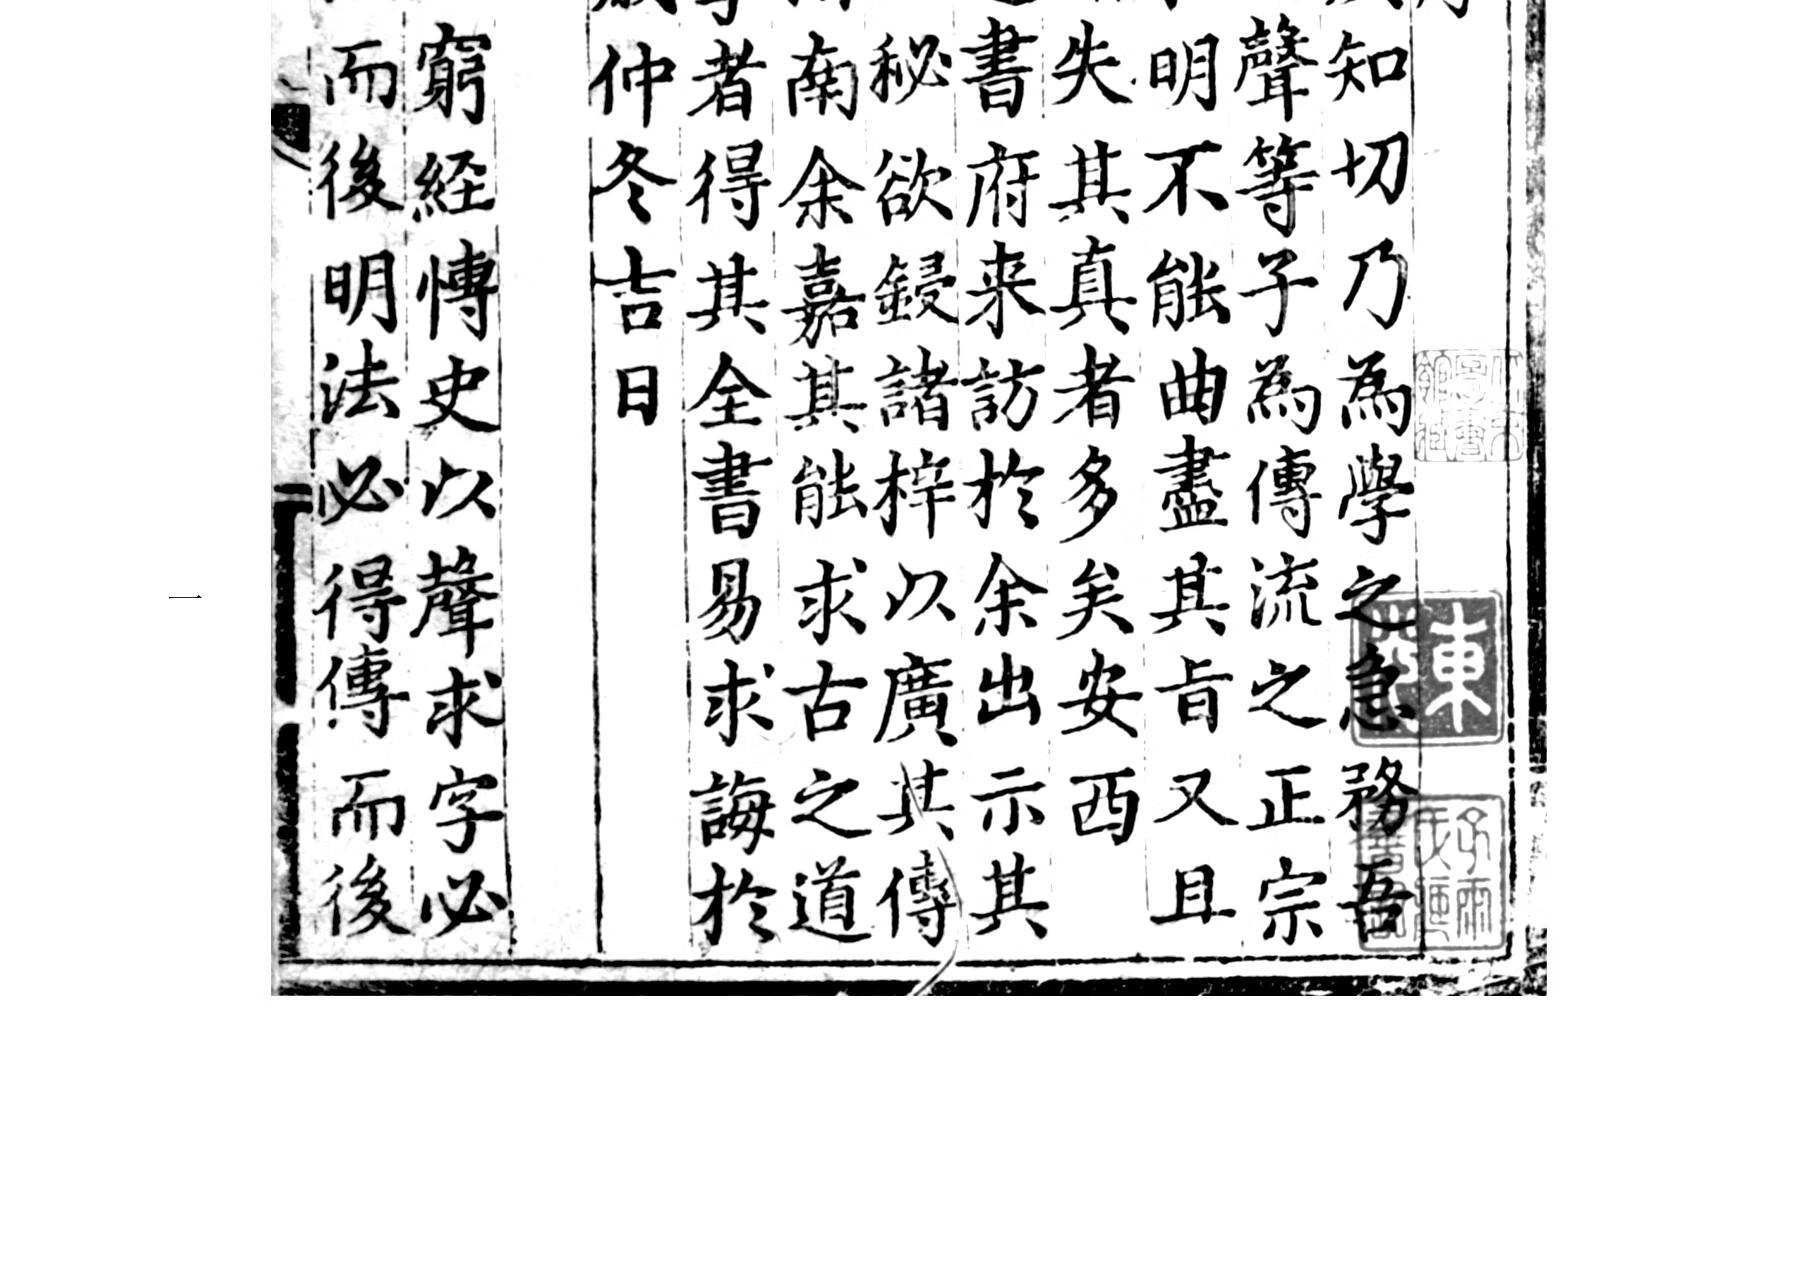 知切乃為學之急務吾
聲等子為傳流之正宗
明不能曲盡其旨又且
失其真者多矣安西
書府来訪於余出示其
秘欲鋟諸梓以廣其傳
南余嘉其能求古之道
者得其全書易求誨於
仲冬吉日
窮経慱史以聲求字必
而後明法必得傳而後
東
一